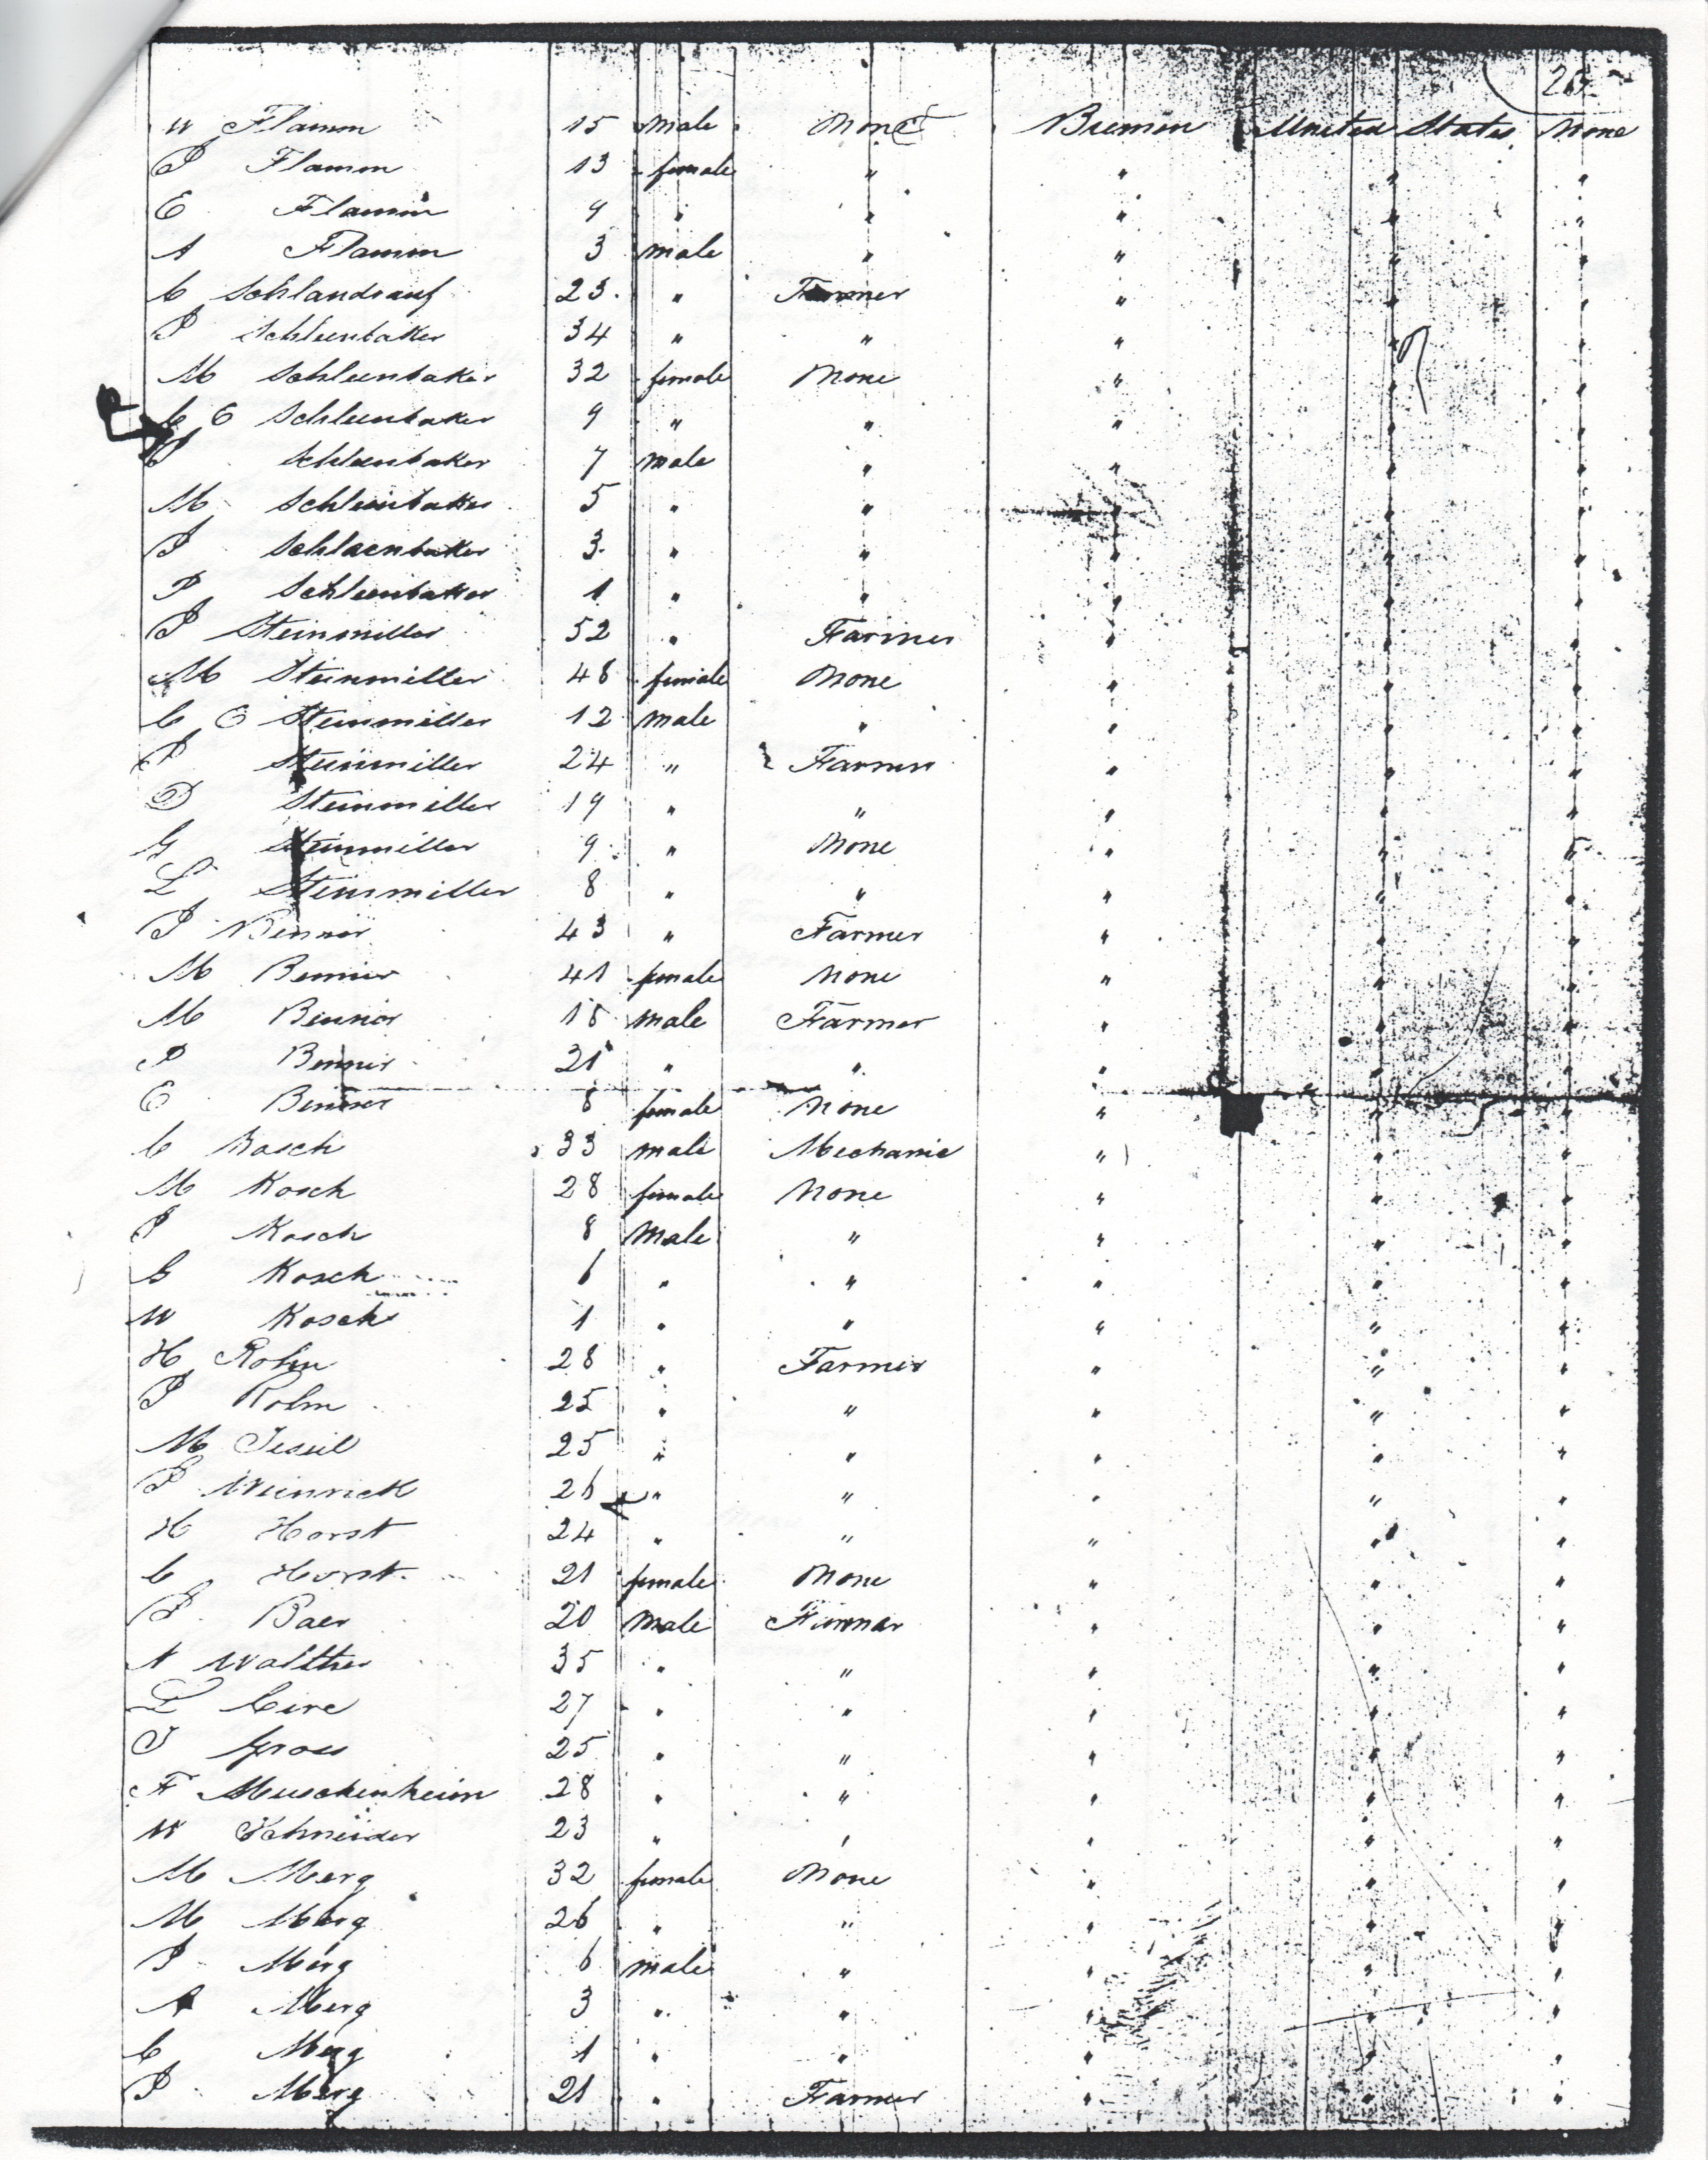 26
W Flamm 15 Male None Bremen United States None
J Flamm 13 female " " " "
E Flamm 9 " " " " "
A Flamm 3 male " " " "
C Schlandrauf 23 " Farmer " " "
J Schleenbaker 34 " " " " "
M Schleenbaker 32 female None " " "
C E Schleenbaker 9 " " " " "
J Schleenbaker 7 male " " " "
M Schleenbaker 5 " " " " "
J Schleenbaker 3 " " " " "
P Schleenbaker 1 " " " " "
J Steinmiller 52 " Farmer " " "
M Steinmiller 48 female None " " "
C E Steinmiller 12 male " " " "
P Steinmiller 24 " Farmer " " "
D Steinmiller 19 " " " " "
G Steinmiller 9 " None " " "
L Steinmiller 8 " " " " "
J Benner 43 " Farmer " " "
M Benner 41 female None " " "
M Benner 18 male Farmer " " "
P Benner 21 " " " " "
E Benner 8 female None " " "
C Kosch 33 male Mechanic " " "
M Kosch 28 female None " " "
J Kosch 8 Male " " " "
G Kosch 6 " " " " "
W Kosch 1 " " " " "
H Rohm 28 " Farmer " " "
J Rohm 25 " " " " "
M 25 " " " " "
J Weinrich 26 " " " " "
H Horst 24 " " " " "
C Horst 21 female None " " "
J Baer 20 Male Farmer " " "
N Walther 35 " " " " "
L 27 " " " " "
J Gross 25 " " " " "
F Muschenheim 28 " " " " "
W Schneider 23 " " " " "
M Merg 32 female None " " "
M Merg 26 " " " " "
J Merg 6 male " " " "
A Merg 3 " " " " "
C Merg 1 " " " " "
J Merg 21 " Farmer " " "